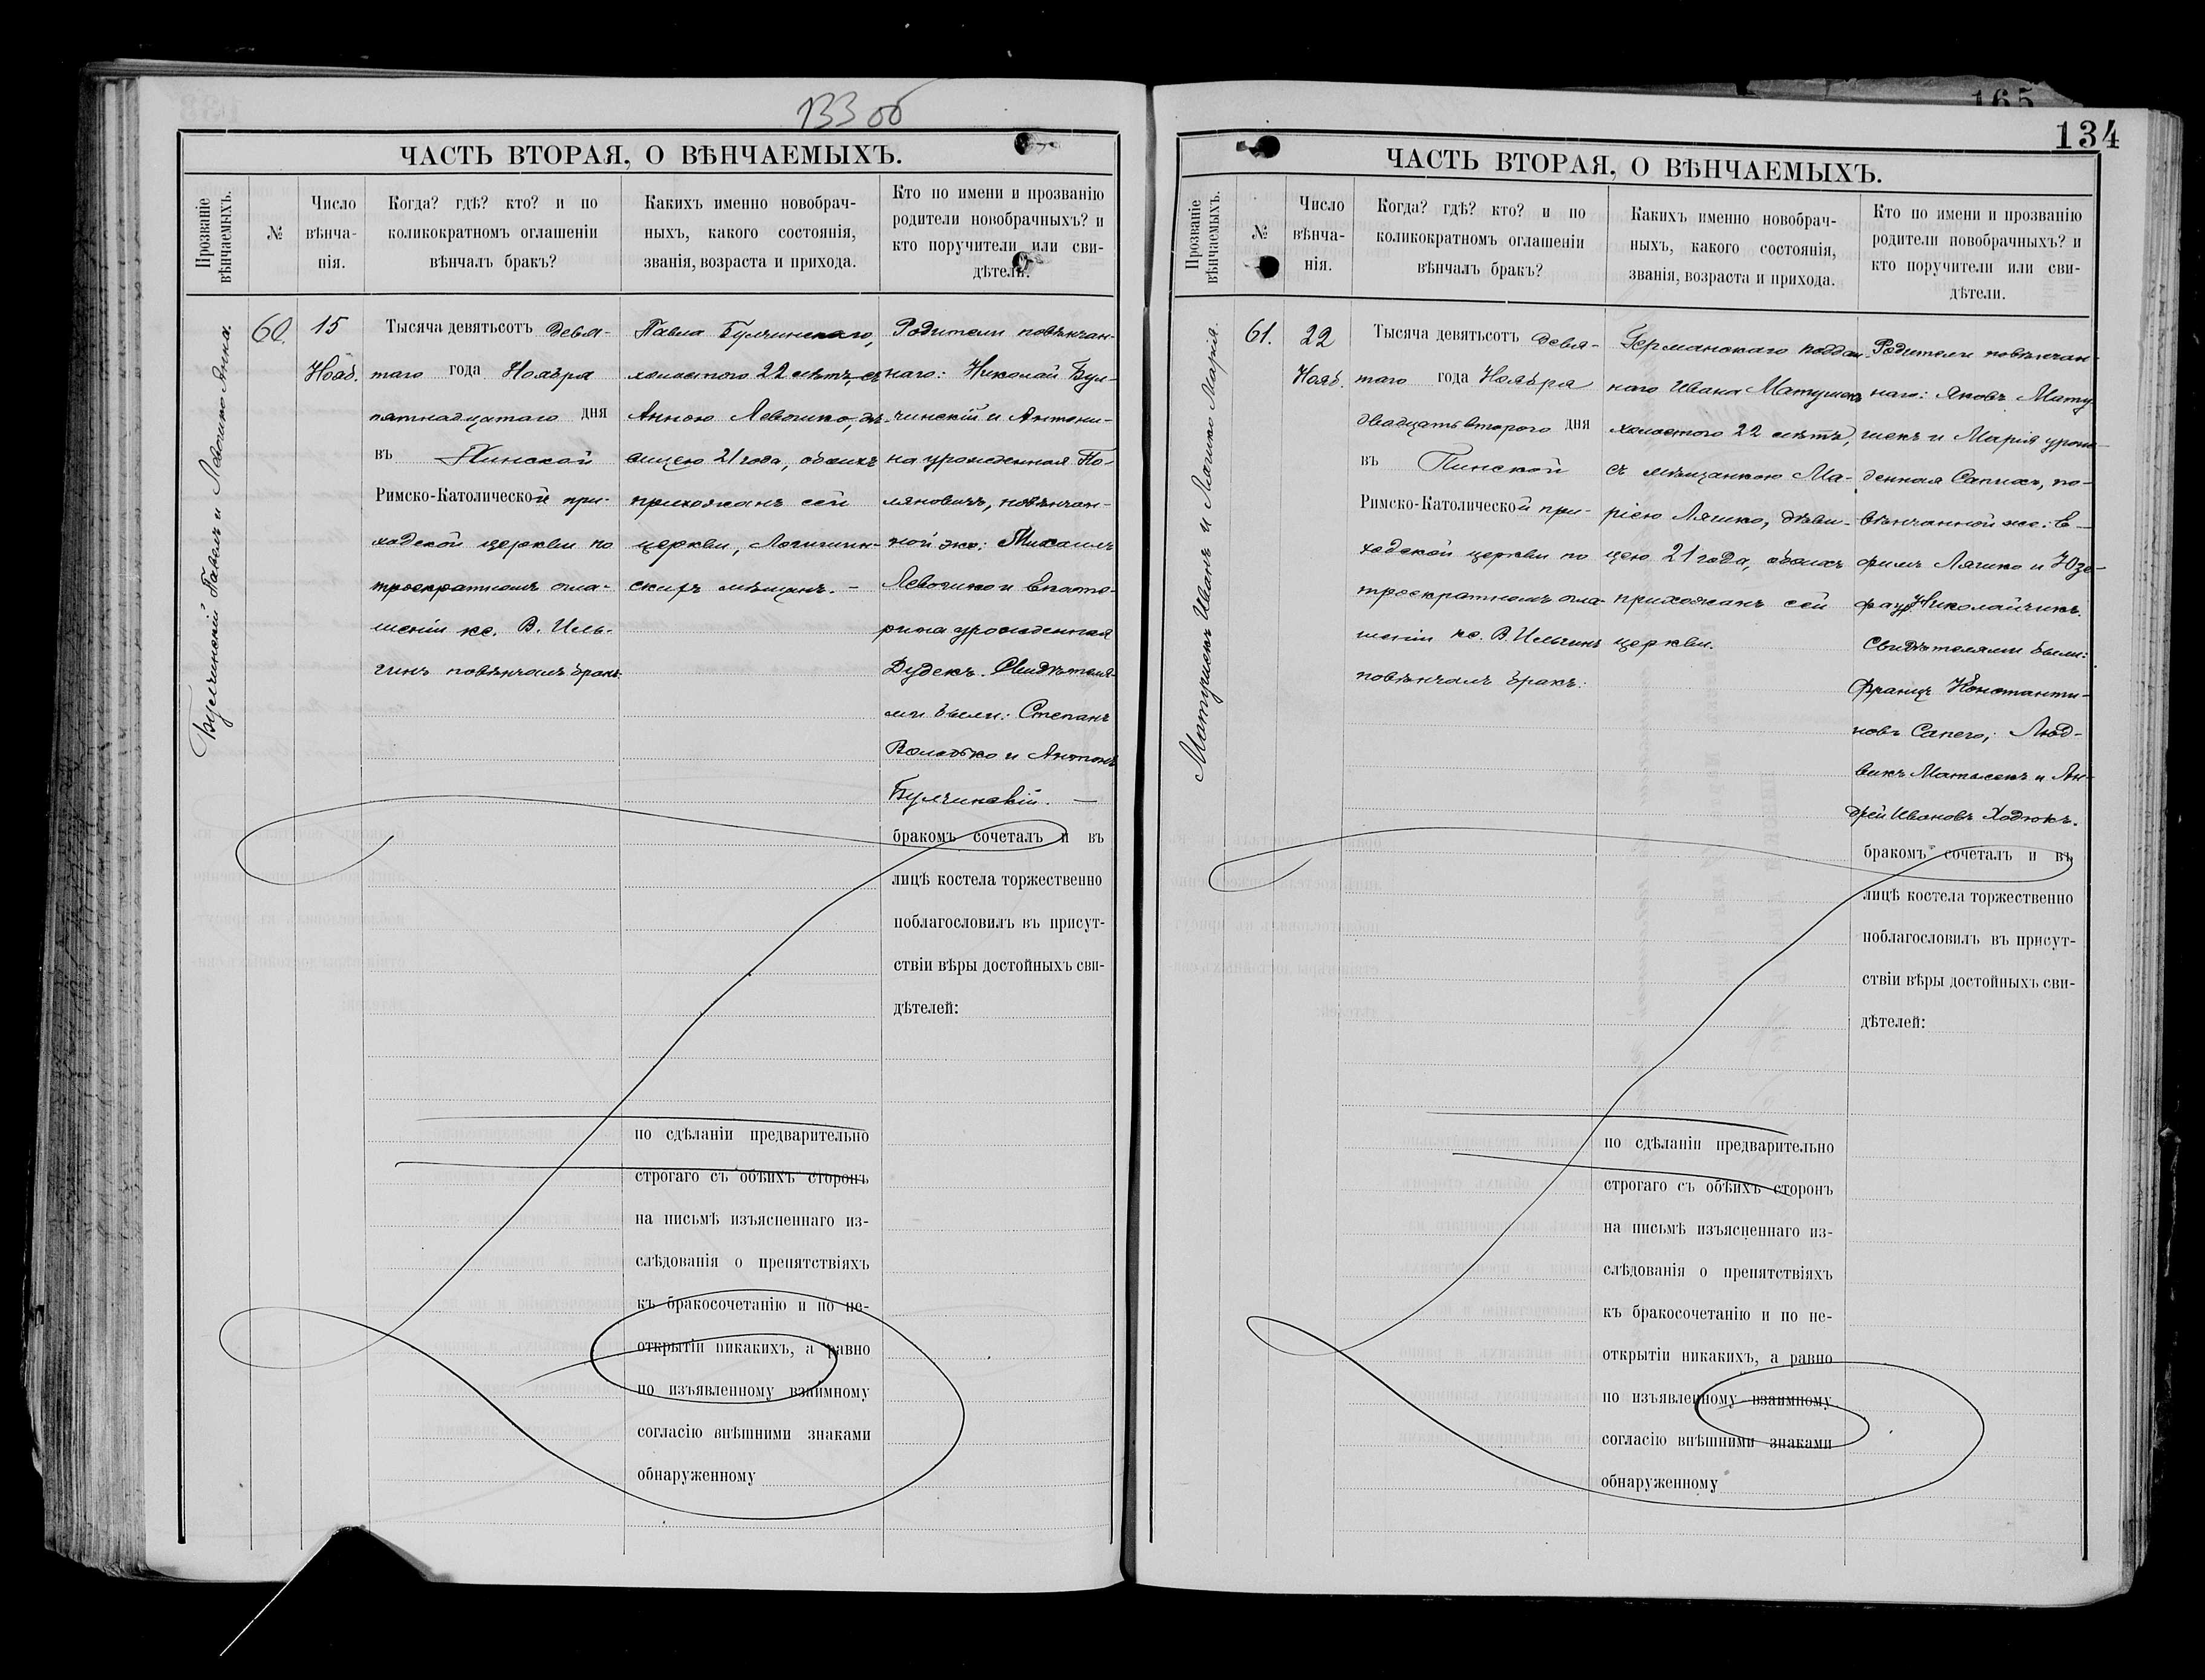 133 об
ЧАСТЬ ВТОРАЯ, О ВѢНЧАЕМЫХЪ.
Прозваніе вѣнчаемыхъ.
№
Число
вѣнча-
нія.
Когда? гдѣ? кто? и по
коликократномъ оглашеніи
вѣнчалъ бракъ?
Какихъ именно новобрач-
ныхъ, какого состоянія,
званія, возраста и прихода.
Кто по имени и прозванію
родители новобрачныхъ? и
кто поручители или сви-
дѣтели.
Булчинскій Павелъ и Левошко Анна.
60.
15
Нояб.
Тысяча девятьсотъ девя-
таго года Ноября
пятнадцатаго дня
въ Пинской
Римско-Католической при-
ходской церкви по
троекратномъ огла-
шеніи кс. В. Иль-
гинъ повѣнчалъ бракъ:
Павла Булчинскаго,
холостого 22 лѣтъ, съ
Анною Левошко, дѣ-
вицею 21 года, обоихъ
прихожанъ сей
церкви, Логишин-
скихъ мѣщанъ. –
Родители повѣнчан-
наго: Николай Бул-
чинскій и Антони-
на урожденная По-
ляновичъ, повѣнчан-
ной же: Михаилъ
Левошко и Екате-
рина урожденная
Дудекъ. Свидѣтеля-
ми были: Степанъ
Володько и Антонъ
Булчинскій. —
бракомъ сочеталъ и въ
лицѣ костела торжественно
поблагословилъ въ присут-
ствіи вѣры достойныхъ сви-
дѣтелей:
по сдѣланіи предварительно
строгаго съ обѣихъ сторонъ
на письмѣ изъясненнаго из-
слѣдованія о препятствіяхъ
къ бракосочетанію и по не-
открытіи никакихъ, а равно
по изъявленному взаимному
согласію внѣшними знаками
обнаруженному
165
134
ЧАСТЬ ВТОРАЯ, О ВѢНЧАЕМЫХЪ.
Прозваніе вѣнчаемыхъ.
№
Число
вѣнча-
нія.
Когда? гдѣ? кто? и по
коликократномъ оглашеніи
вѣнчалъ бракъ?
Какихъ именно новобрач-
ныхъ, какого состоянія,
званія, возраста и прихода.
Кто по имени и прозванію
родители новобрачныхъ? и
кто поручители или сви-
дѣтели.
Матушекъ Иванъ и Лягико Марія.
61.
22
Нояб.
Тысяча девятьсотъ девя-
таго года Ноября
двадцать второго дня
въ Пинской
Римско-Католической при-
ходской церкви по
троекратномъ огла-
шеніи кс. В. Ильгинъ
повѣнчалъ бракъ:
Германскаго поддан-
наго Ивана Матушека
холостого 22 лѣтъ,
съ мѣщанкою Ма-
ріею Лягико, дѣви-
цею 21 года, обоихъ
прихожанъ сей
церкви.
Родители повѣнчан-
наго: Яковъ Мату-
шекъ и Марія урож-
денная Сапиха, по-
вѣнчанной же: Е-
фимъ Лягико и Юзе-
фа ур. Николайчикъ.
Свидѣтелями были:
Францъ Константи-
новъ Сапего, Люд-
викъ Матысекъ и Ан-
дрей Ивановъ Ходюкъ.
бракомъ сочеталъ и въ
лицѣ костела торжественно
поблагословилъ въ присут-
ствіи вѣры достойныхъ сви-
дѣтелей:
по сдѣланіи предварительно
строгаго съ обѣихъ сторонъ
на письмѣ изъясненнаго из-
слѣдованія о препятствіяхъ
къ бракосочетанію и по не-
открытіи никакихъ, а равно
по изъявленному взаимному
согласію внѣшними знаками
обнаруженному